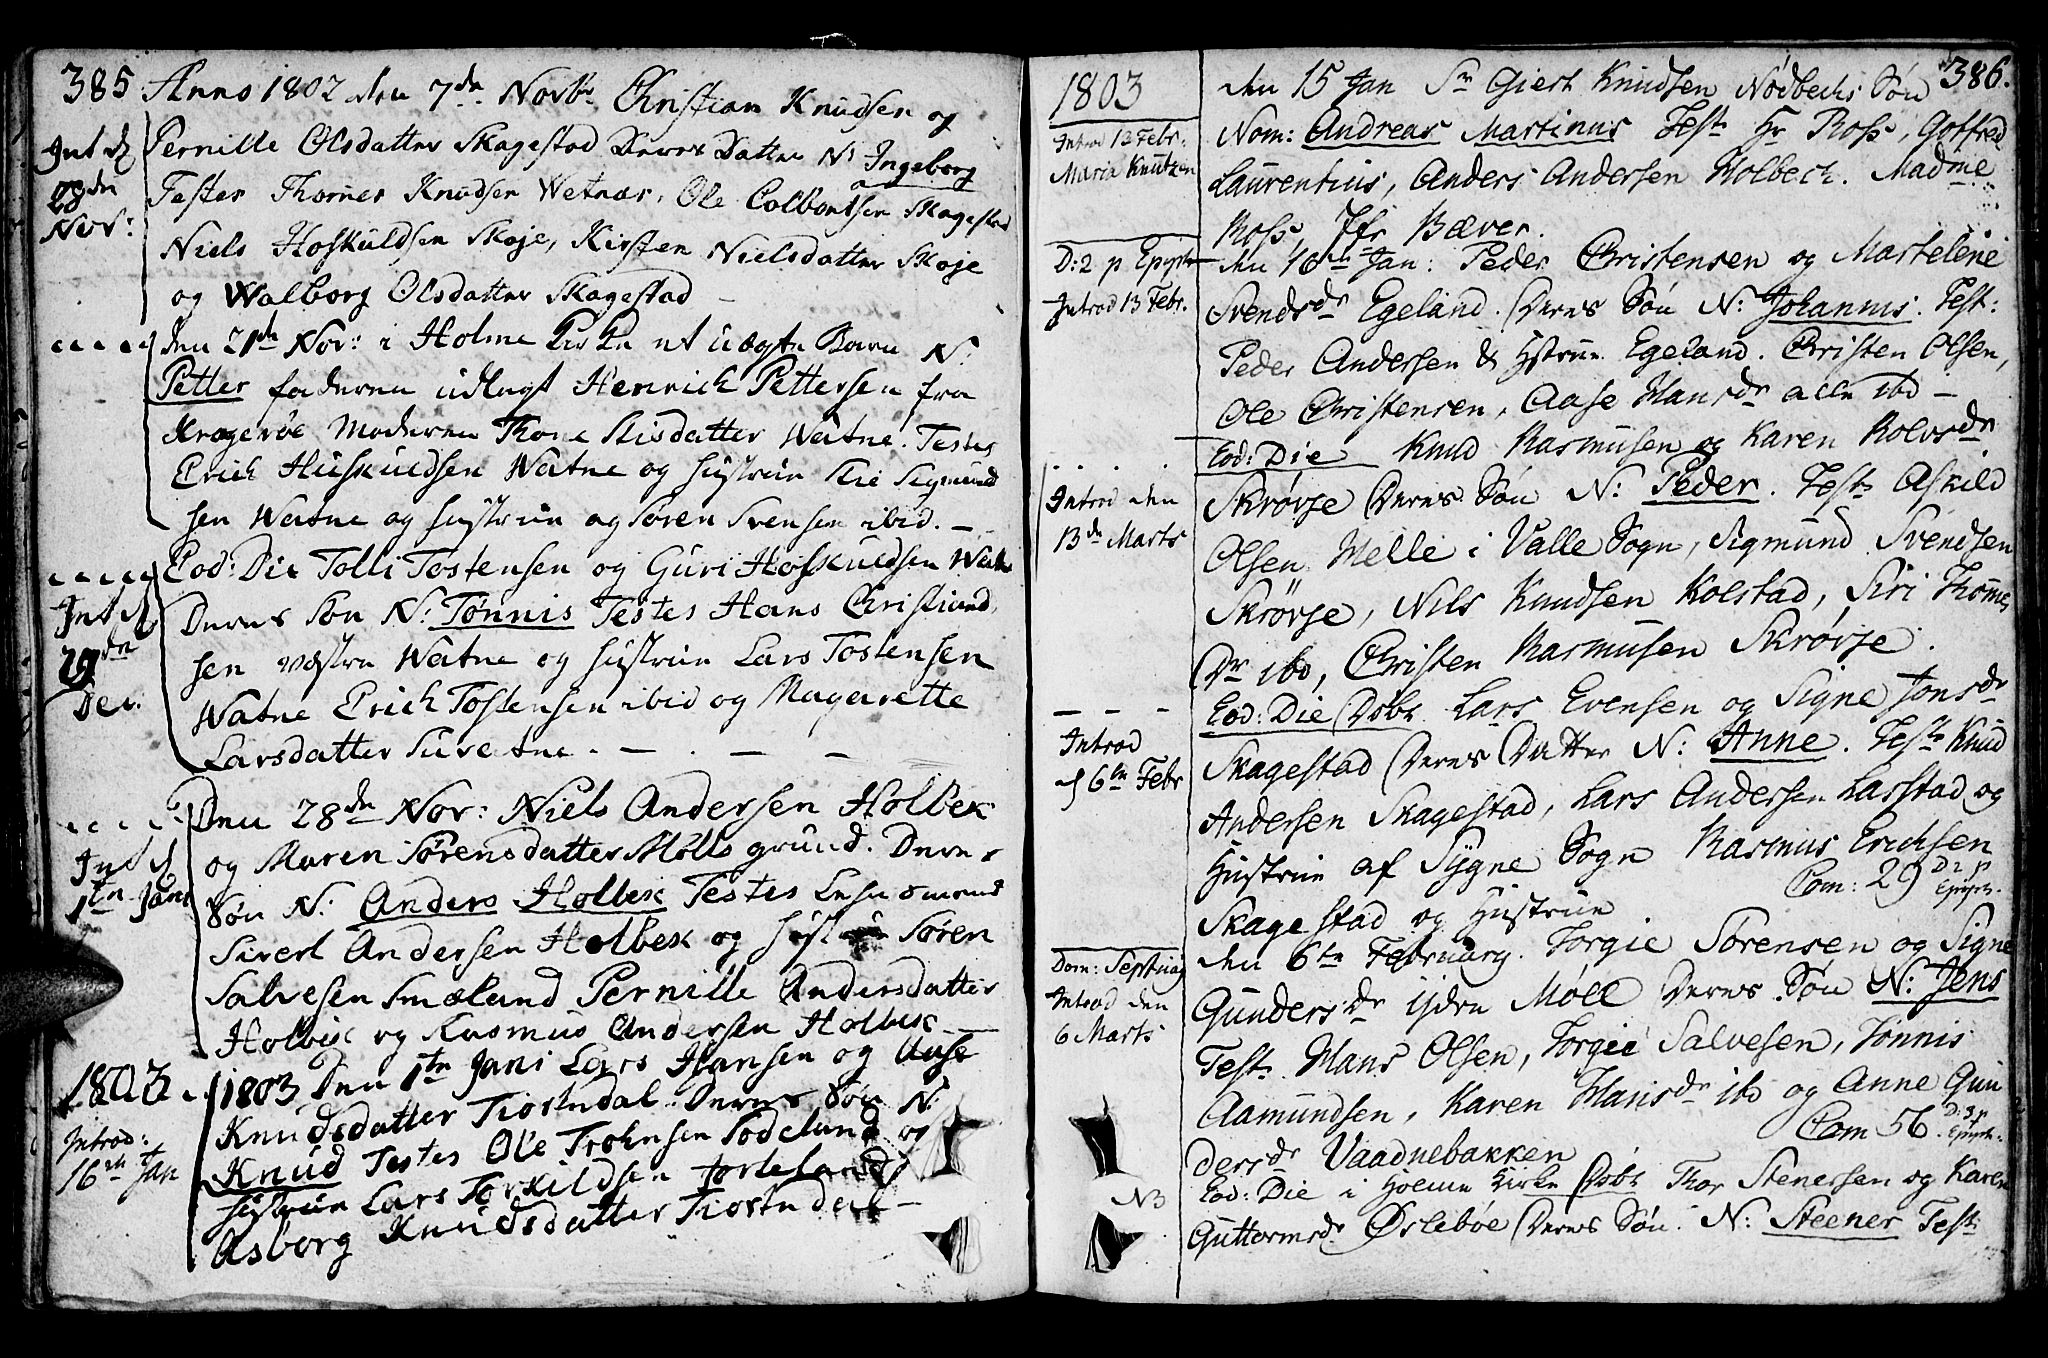 385
Anno 1802 den 7de Novbr Christian Knudsen og
Pernille Olsdatter Skagestad Deres Datter N: Ingeborg
Testes Thomes Knudsen Wetnæs, Ole Colbentsen Skagestad
Niels Hoskuldsen Skoje, Kirsten Nielsdatter Skoje
og Walborg Olsdatter Skagestad
Int d
28de
Nov:
den 21de Nov: i Holme Kirke et uægte Barn N:
Petter faderen udlagt Henrich Pettersen fra
Kragerøe Moderen Thone Stisdatter Watne. Testes
Erich Huskuldsen Watne og hustrue Sti Sigmund
sen Watne og hustrue og Søren Svensen ibid.
Eod: Die Tolli Tostensen og Guri Hoskuldsen Watne
Deres Søn N: Tønnis Testes Hans Christiand
sen vestre Watne og hustrue Lars Tostensen
Watne Erich Tostensen ibid og Magarette
Larsdatter
Int d
29de
Dec.
Den 28de Nov: Niels Andersen Holbek
og Maren Sørensdatter Møllsgrund. Deres
Søn N: Anders Holbek Testes
Sivert Andersen Holbek og hustrue Søren
Salvesen Smæland Pernille Andersdatter
Holbek og Rasmus Andersen Holbek
Int d
1te Jani
1803
1803 Den 1te Jani Lars Hansen og Aase
Knudsdatter Tiostedal. Deres Søn N:
Knud Testes Ole Trohnsen Sodeland og
hustrue Lars Torkildsen Jorteland
Asborg Knudsdatter Tiostedal
Introd:
16de Jan
386.
1803
den 15 Jan Sr Giert Knudsen Nødbechs Søn
Nom: Andreas Martinus Test: Hr Ross, Gotfred
Laurentius, Anders Andersen Holbech. Madme
Ross, Jfr Bæver.
Introd 13 Febr.
Maria Knutzen
D: 2 p Epiph
Introd 13 Febr.
den 16de Jan: Peder Christensen og Martelene
Svendsdr Egeland. Deres Søn N: Johannis. Test:
Peder Andersen & Hstrue Egeland. Christen Olsen,
Ole Christensen, Aase Hansdr alle ibd
Eod: Die Knud Rasmusen og Karen Rolvsdr
Skrøvje Deres Søn N: Peder. Test: Askild
Olsen Melle i Valle Sogn, Sigmund Svendsen
Skrøvje, Nils Knudsen Kolstad, Siri Thomes
Dr ibd, Christen Rasmusen Skrøvje.
Introd den
13de Marts
Eod: Die Dobt Lars Evensen og Signe Jonsdr
Skagestad Deres Datter N: Anne. Test: Knud
Andersen Skagestad, Lars Andersen Lasstad og
Hustrue af Sygne Sogn Rasmus Erichsen
Skagestad og Hustrue
Com: 29 D 2 p Epiph.
Introd
d 6te Febr
den 6te February. Torgie Sørensen og Signe
Gundersdr ijdre Møll Deres Søn N: Jens
Test: Hans Olsen, Torgie Salvesen, Tønnis
Aamundsen, Karen Hansdr ibd og Anne Gun
dersdr Vaadnebakken
Com 56. D: 3 p Epiph.
Dom: Septuag
Introd den
6 Marts
NB
Eod: Die i Holme Kirke Dobt Thor Stenersen og Karen
Guttormsdr Øslebøe Deres Søn. N: Steener Test: